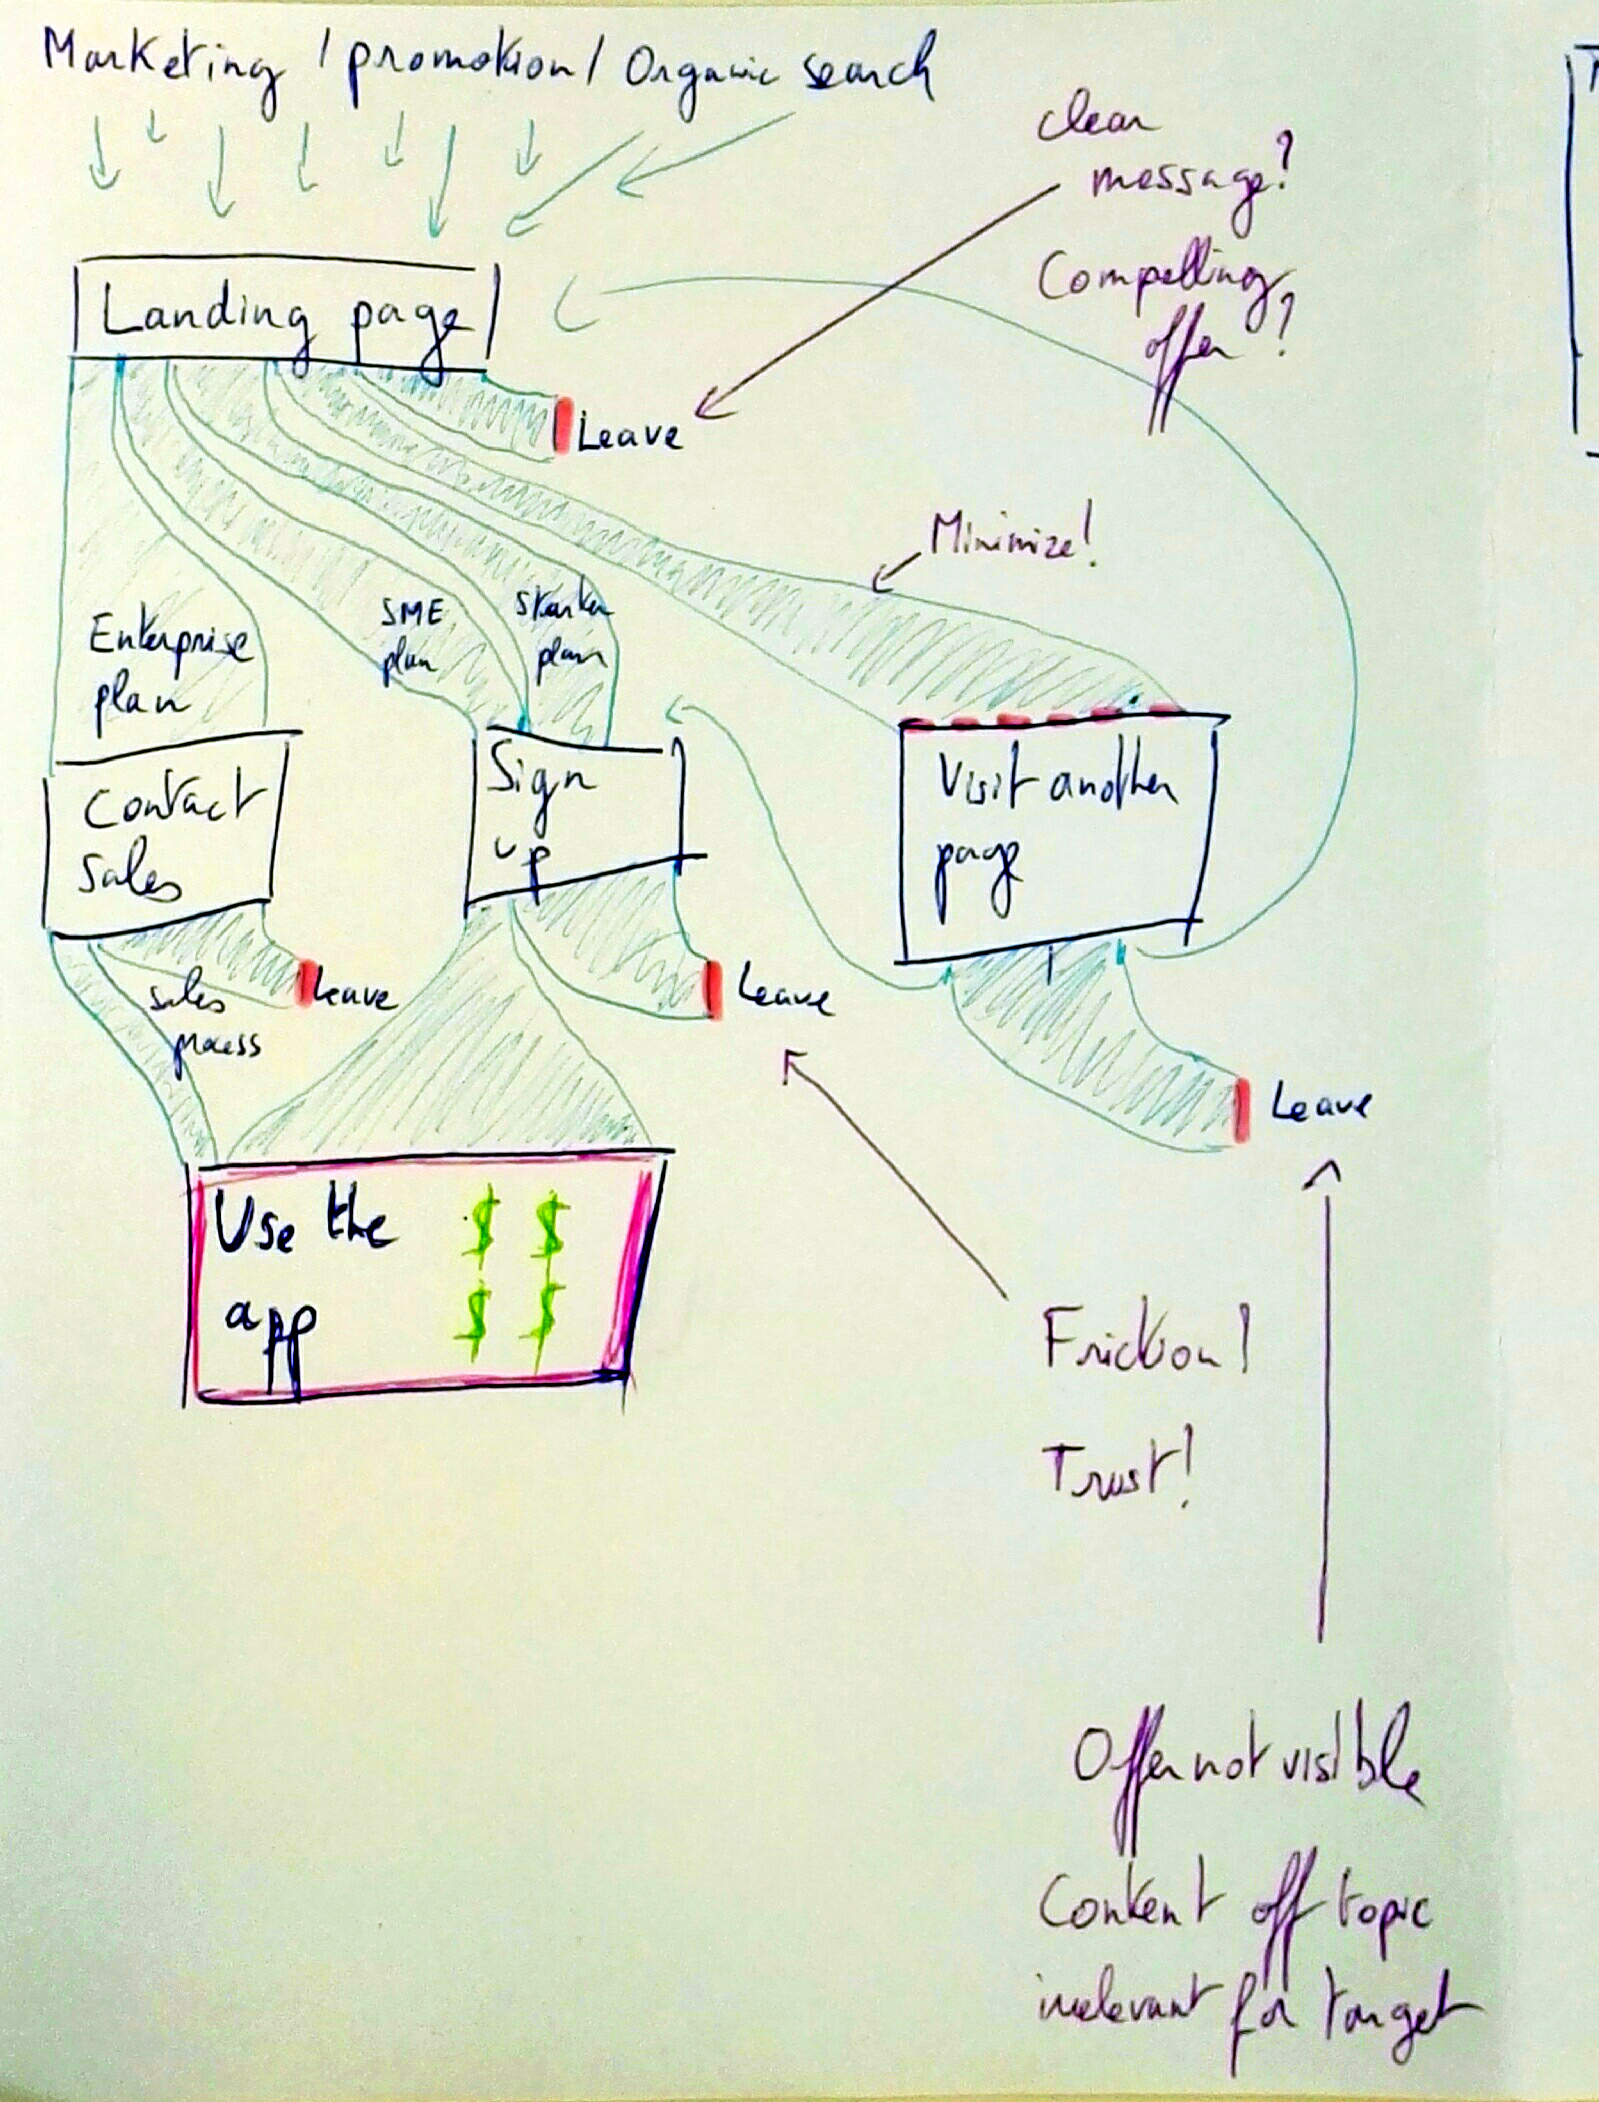 Marketing / promotion / Organic search
clear
message?
Compelling
offer?
Landing page
Leave
Minimize!
Enterprise
plan
SME
plan
Starter
plan
Contact
Sales
Sign
up
Visit another
page
Leave
sales
process
Leave
Leave
Use the $ $
app $ $
Friction!
Trust!
Offer not visible
Content off topic
irrelevant for target